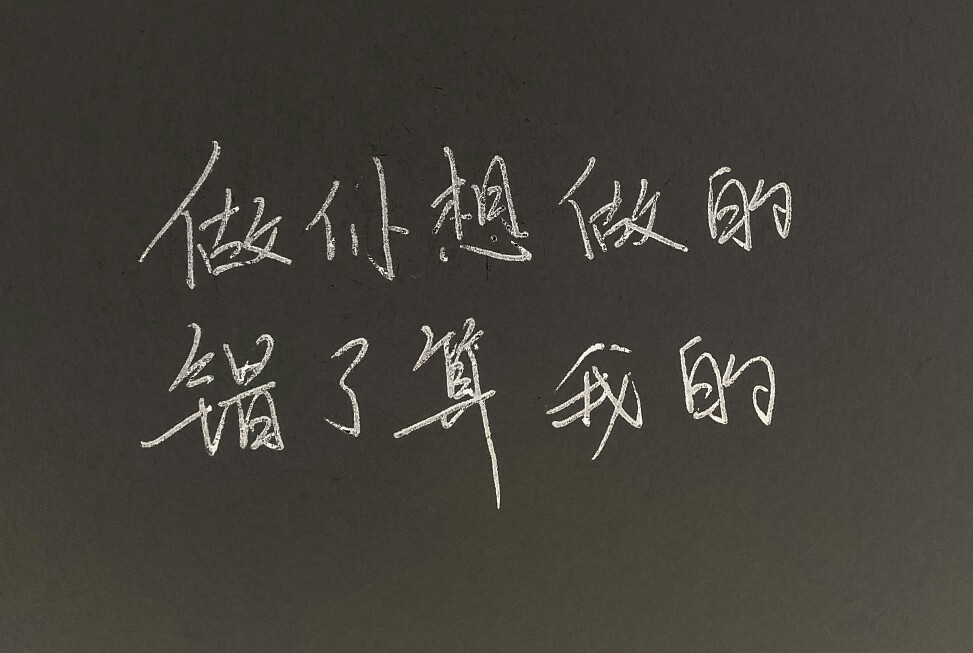 做你想做的
错了算我的